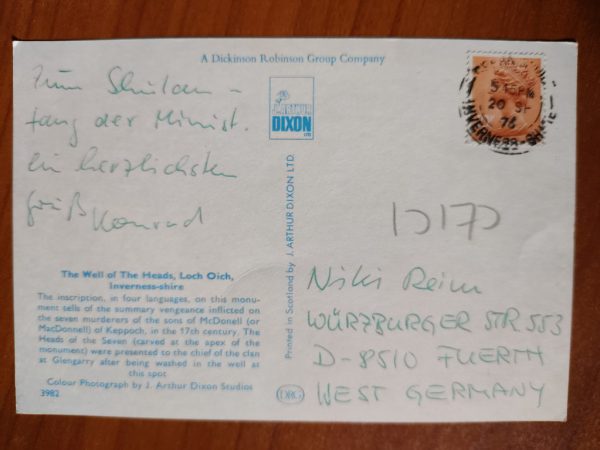 A Dickinson Robinson Group Company
Zum Schulan-
fang der Minist.
ein herzlichsten
Gruß Konrad
J. ARTHUR
DIXON
LTD
5 15PM
20 SP
76
INVERNESS-SHIRE
Printed in Scotland by J. ARTHUR DIXON LTD.
Niki Reim
WÜRZBURGER STR 553
D-8510 FUERTH
WEST GERMANY
The Well of The Heads, Loch Oich,
Inverness-shire
The inscription, in four languages, on this monu-
ment tells of the summary vengeance inflicted on
the seven murderers of the sons of McDonell (or
MacDonnell) of Keppoch, in the 17th century. The
Heads of the Seven (carved at the apex of the
monument) were presented to the chief of the clan
at Glengarry after being washed in the well at
this spot
Colour Photograph by J. Arthur Dixon Studios
3982
DRG